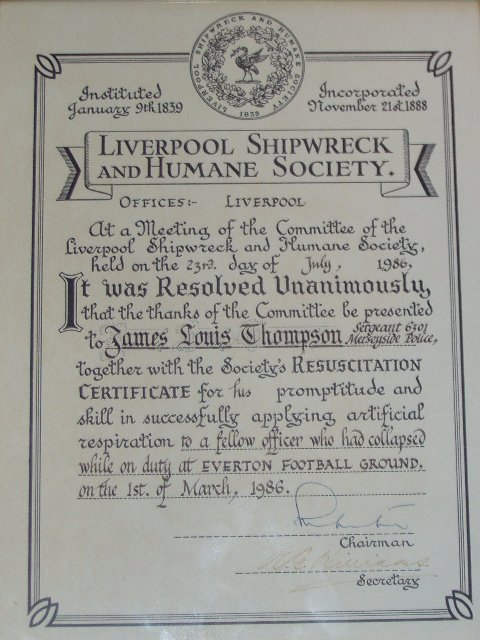 LIVERPOOL SHIPWRECK AND HUMANE SOCIETY
1839
Instituted
January 9th 1839
Incorporated
November 21st. 1888
LIVERPOOL SHIPWRECK
AND HUMANE SOCIETY.
OFFICES:- LIVERPOOL
At a Meeting of the Committee of the
Liverpool Shipwreck and Humane Society,
held on the 23rd. day of July, 1986,
It was Resolved Unanimously,
that the thanks of the Committee be presented
to James Louis Thompson Sergeant 6301
Merseyside Police,
together with the Society's RESUSCITATION
CERTIFICATE for his promptitude and
skill in successfully applying artificial
respiration to a fellow officer who had collapsed
while on duty at EVERTON FOOTBALL GROUND,
on the 1st. of March, 1986.
Chairman
Secretary